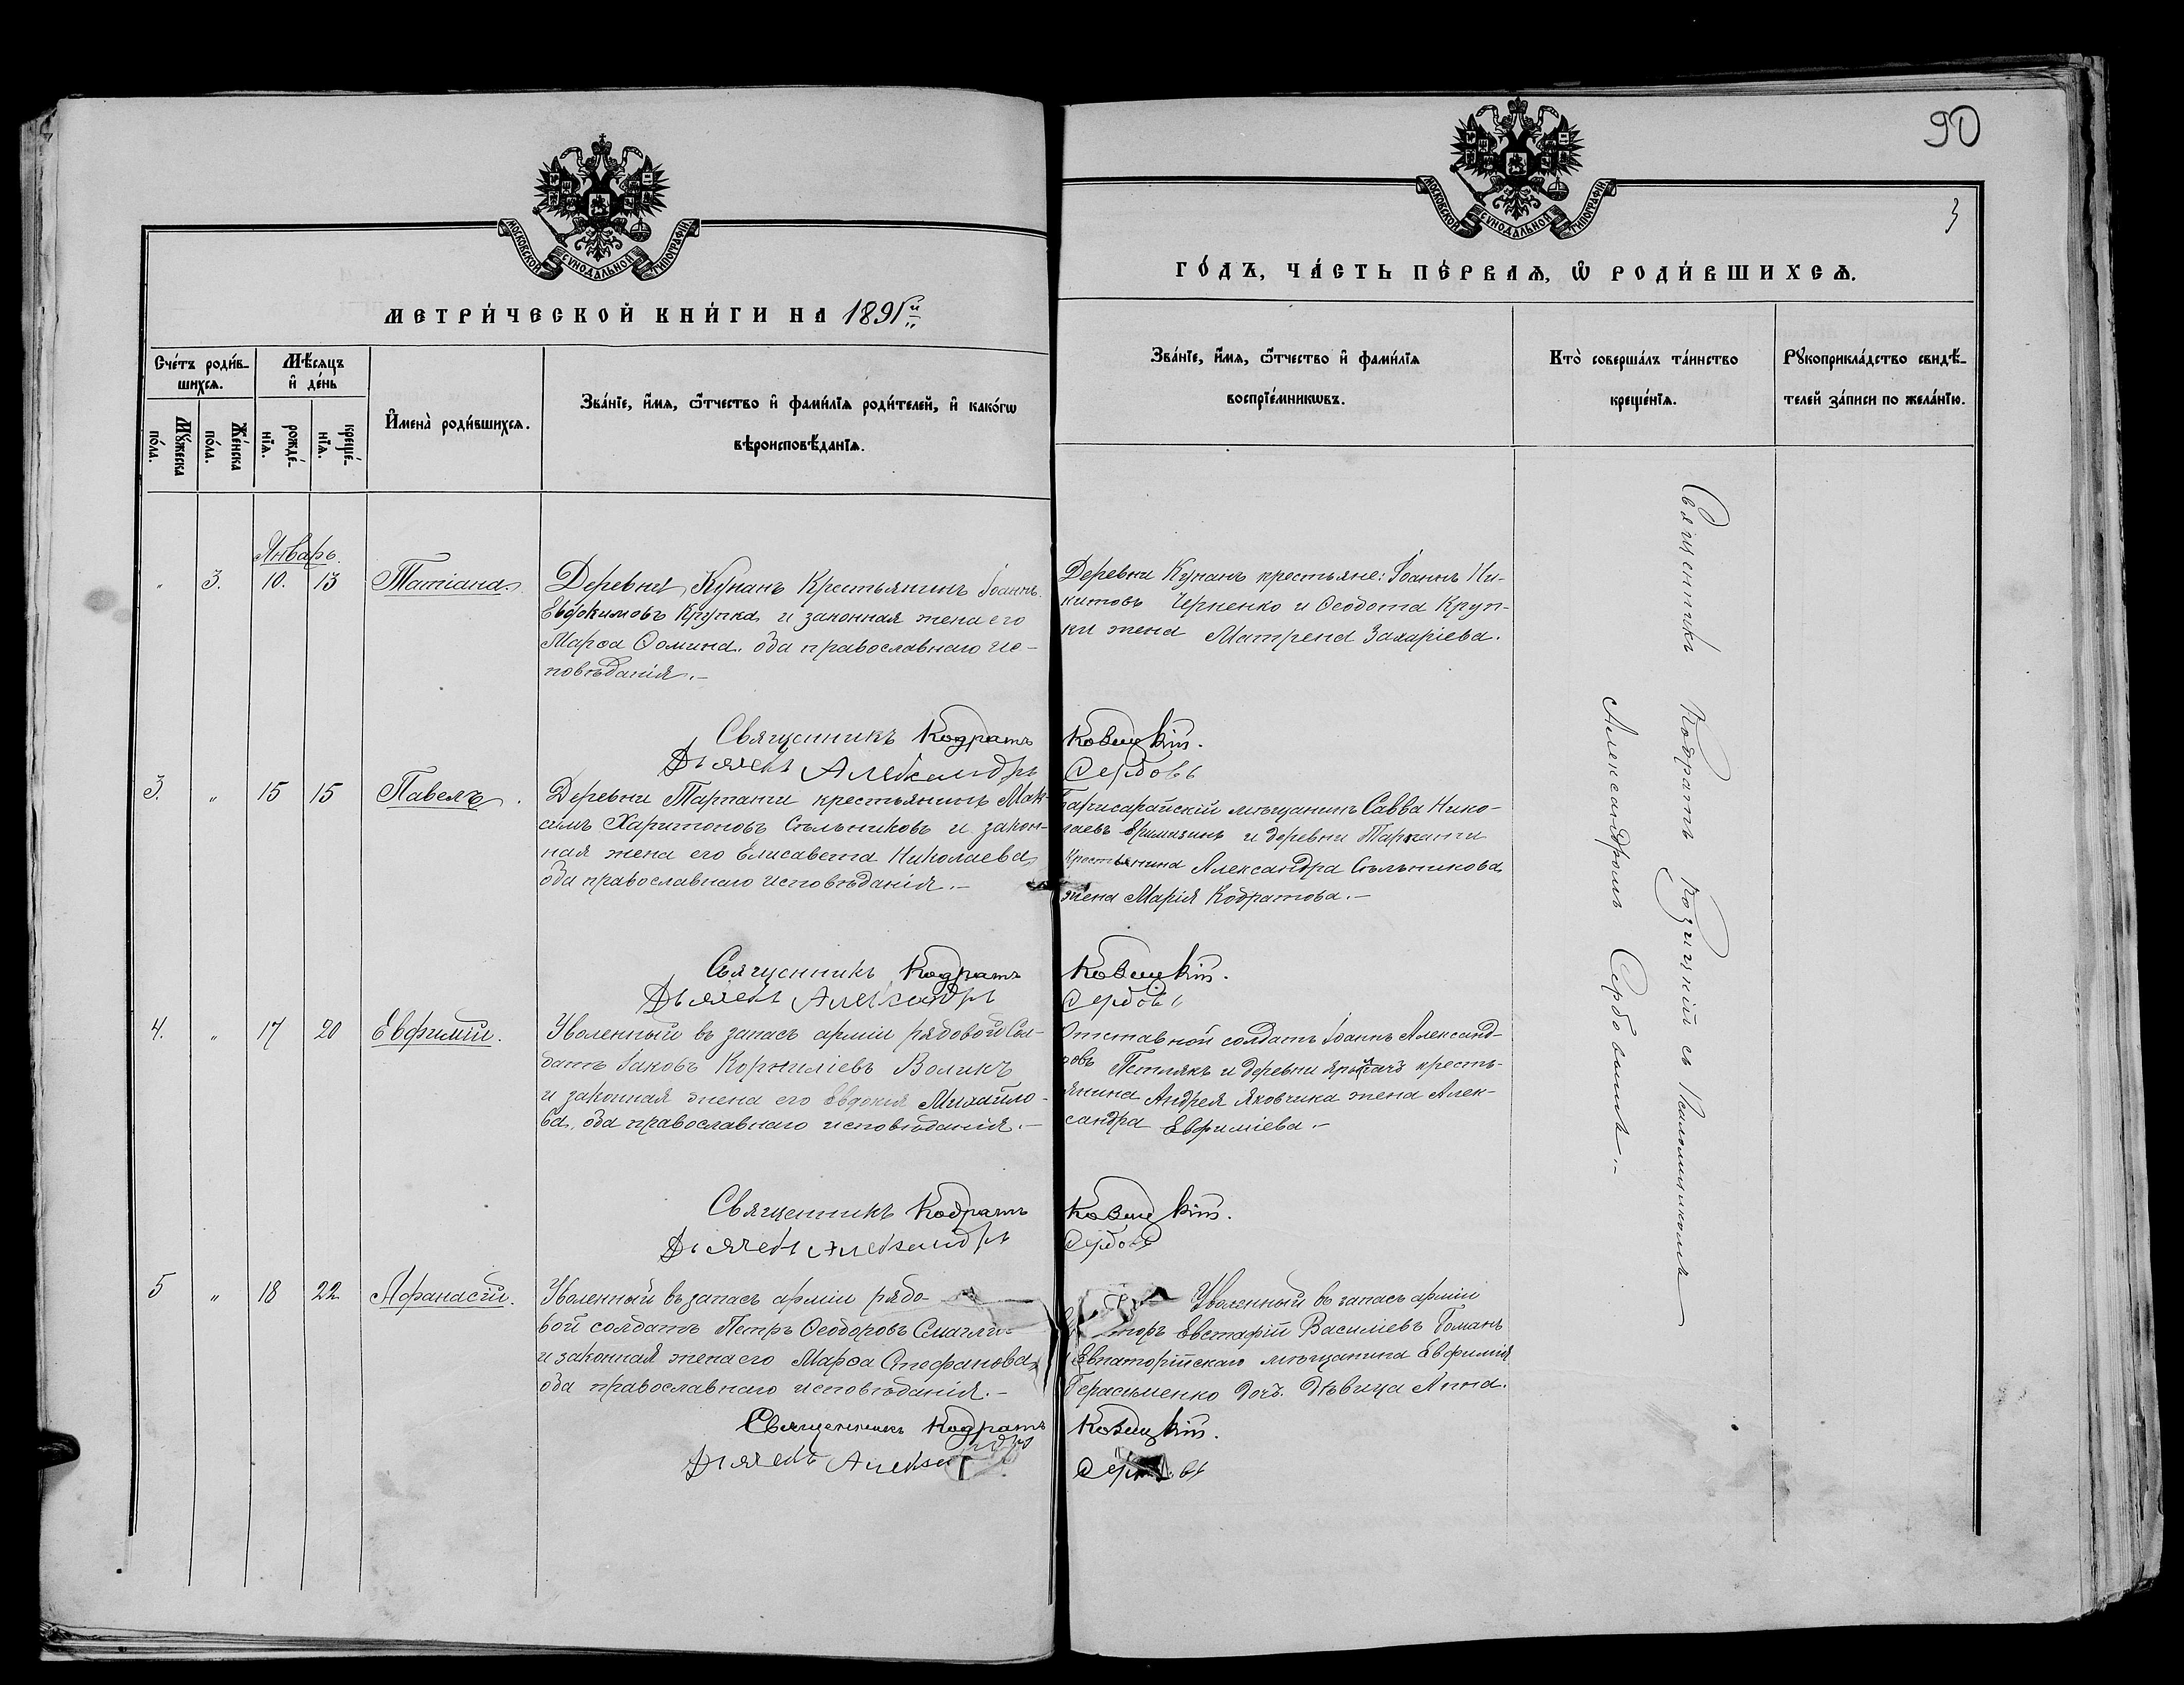 90
3
МОСКОВСКОЙ СУНОДАЛЬНОЙ ТИПОГРАФІИ
МОСКОВСКОЙ СУНОДАЛЬНОЙ ТИПОГРАФІИ
МЕТРИ́ЧЕСКОЙ КНИ́ГИ НА 1891й
ГО́ДЪ, ЧА́СТЬ ПЕ́РВАѦ, Ѽ РОДИ́ВШИХСѦ.
Сче́тъ роди́в-
шихсѧ.
Мѣ́сѧцъ
и҆ де́нь
Мꙋ́жеска
по́ла.
Же́нска
по́ла.
рожде́-
нїѧ.
креще́-
нїѧ.
И҆мена̀ роди́вшихсѧ.
Зва́нїе, и҆́мѧ, ѻ҆́тчество и҆ фами́лїѧ роди́телей, и҆ како́гѡ
вѣроисповѣ́данїѧ.
Зва́нїе, и҆́мѧ, ѻ҆́тчество и҆ фами́лїѧ
воспрїе́мникѡвъ.
Кто̀ соверша́лъ та́инство
креще́нїѧ.
Рꙋкоприкла́дство свидѣ́-
телей за́писи по жела́нїю.
Январь.
" 3. 10. 13 Татіана. Деревни Кунанъ Крестьянинъ Іоаннъ
Евдокимовъ Крупка и законная жена его
Марѳа Ѳомина. оба православнаго ис-
повѣданія.-
Деревни Кунанъ крестьяне: Іоаннъ Ни-
китовъ Черненко и Ѳеодота Круп-
ки жена Матрена Захаріева.
Священникъ Кодратъ Козицкій.
Дьячекъ Александръ Сербовъ
3. " 15 15 Павелъ. Деревни Тарпанчи крестьянинъ Мак-
симъ Харитоновъ Стельниковъ и закон-
ная жена его Елисавета Николаева
оба православнаго исповѣданія.-
Бахчисарайскій мѣщанинъ Савва Нико-
лаевъ и деревни Тарпанчи
Крестьянина Александра Стельникова
жена Марія Кодратова.-
Священникъ Кодратъ Козицкій.
Дьячекъ Александръ Сербовъ
4. " 17 20 Евфимій. Уволенный въ запасъ арміи рядовой Сол-
датъ Іаковъ Корниліевъ Воликъ
и законная жена его Евдокія Михайло-
ва, оба православнаго исповѣданія.-
Отставной солдатъ Іоаннъ Александ-
ровъ Петлякъ и деревни кресть-
янина Андрея Яковчика жена Алек-
сандра Евфиміева.-
Священникъ Кодратъ Козицкій.
Дьячекъ Александръ Сербовъ
5 " 18 22 Афанасій. Уволенный въ запасъ арміи рядо-
вой солдатъ Петръ Ѳеодоровъ
и законная жена его Марѳа Стефанова
оба православнаго исповѣданія.-
Уволенный въ запасъ арміи
Евстафій Василіевъ Гоманъ
и Евпаторійскаго мѣщанина Евфимія
Герасименко дочь дѣвица Анна.
Священникъ Кодратъ Козицкій.
Дьячекъ Сербовъ
Священникъ Кодратъ Козицкій съ Псаломщикомъ
Александромъ Сербовымъ.-